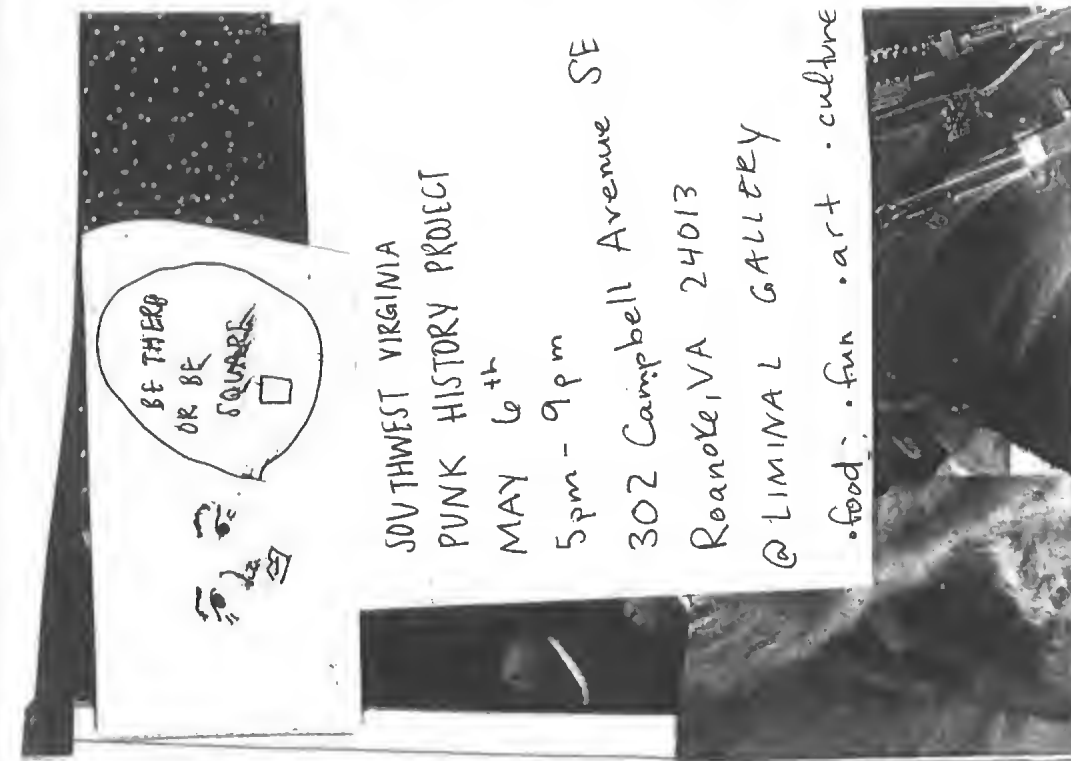 BE THERE
OR BE
SQUARE
SOUTHWEST VIRGINIA
PUNK HISTORY PROJECT
MAY 6th
5pm - 9pm
302 Campbell Avenue SE
Roanoke, VA 24013
@ LIMINAL GALLERY
.food .fun .art .culture